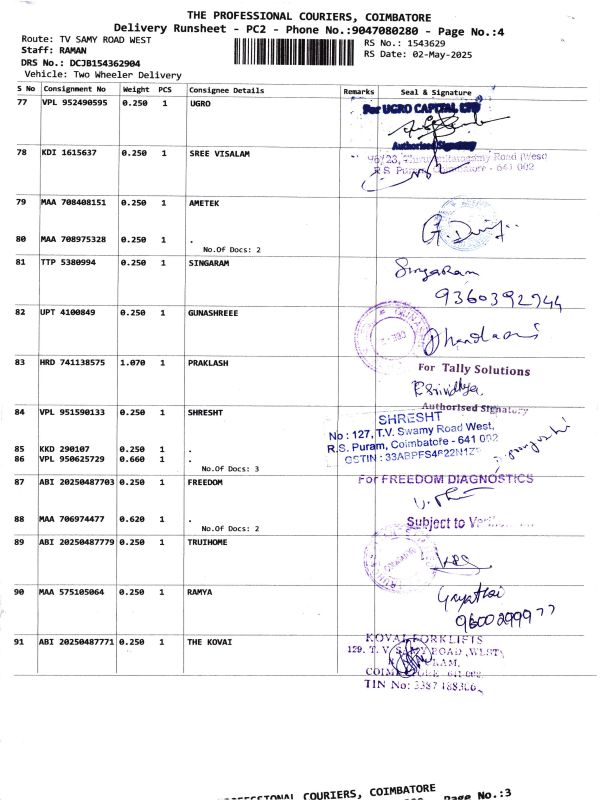 THE PROFESSIONAL COURIERS, COIMBATORE
Delivery Runsheet - PC2 - Phone No.:9047080280 - Page No.:4
Route: TV SAMY ROAD WEST
Staff: RAMAN
DRS No.: DCJB154362904
Vehicle: Two Wheeler Delivery
RS No.: 1543629
RS Date: 02-May-2025
S No Consignment No Weight PCS Consignee Details Remarks Seal & Signature
77 VPL 952490595 0.250 1 UGRO
For UGRO CAPITAL LTD
Authorised Signatory
78 KDI 1615637 0.250 1 SREE VISALAM
Road (West)
R.S. Puram, Coimbatore - 641 002
79 MAA 708408151 0.250 1 AMETEK
80 MAA 708975328 0.250 1 .
No.Of Docs: 2
81 TTP 5380994 0.250 1 SINGARAM
Singaram
9360392944
82 UPT 4100849 0.250 1 GUNASHREEE
83 HRD 741138575 1.070 1 PRAKLASH
For Tally Solutions
Authorised Signatory
84 VPL 951590133 0.250 1 SHRESHT
SHRESHT
No : 127, T.V. Swamy Road West,
R.S. Puram, Coimbatore - 641 002
85 KKD 290107 0.250 1 .
86 VPL 950625729 0.660 1 .
No.Of Docs: 3
87 ABI 20250487703 0.250 1 FREEDOM
For FREEDOM DIAGNOSTICS
88 MAA 706974477 0.620 1 .
No.Of Docs: 2
Subject to
89 ABI 20250487779 0.250 1 TRUIHOME
90 MAA 575105064 0.250 1 RAMYA
Gayathri
9600299977
91 ABI 20250487771 0.250 1 THE KOVAI
KOVAI FORKLIFTS
129. T. V. SAMY ROAD (WEST)
TIN No:
COURIERS, COIMBATORE
Page No.:3